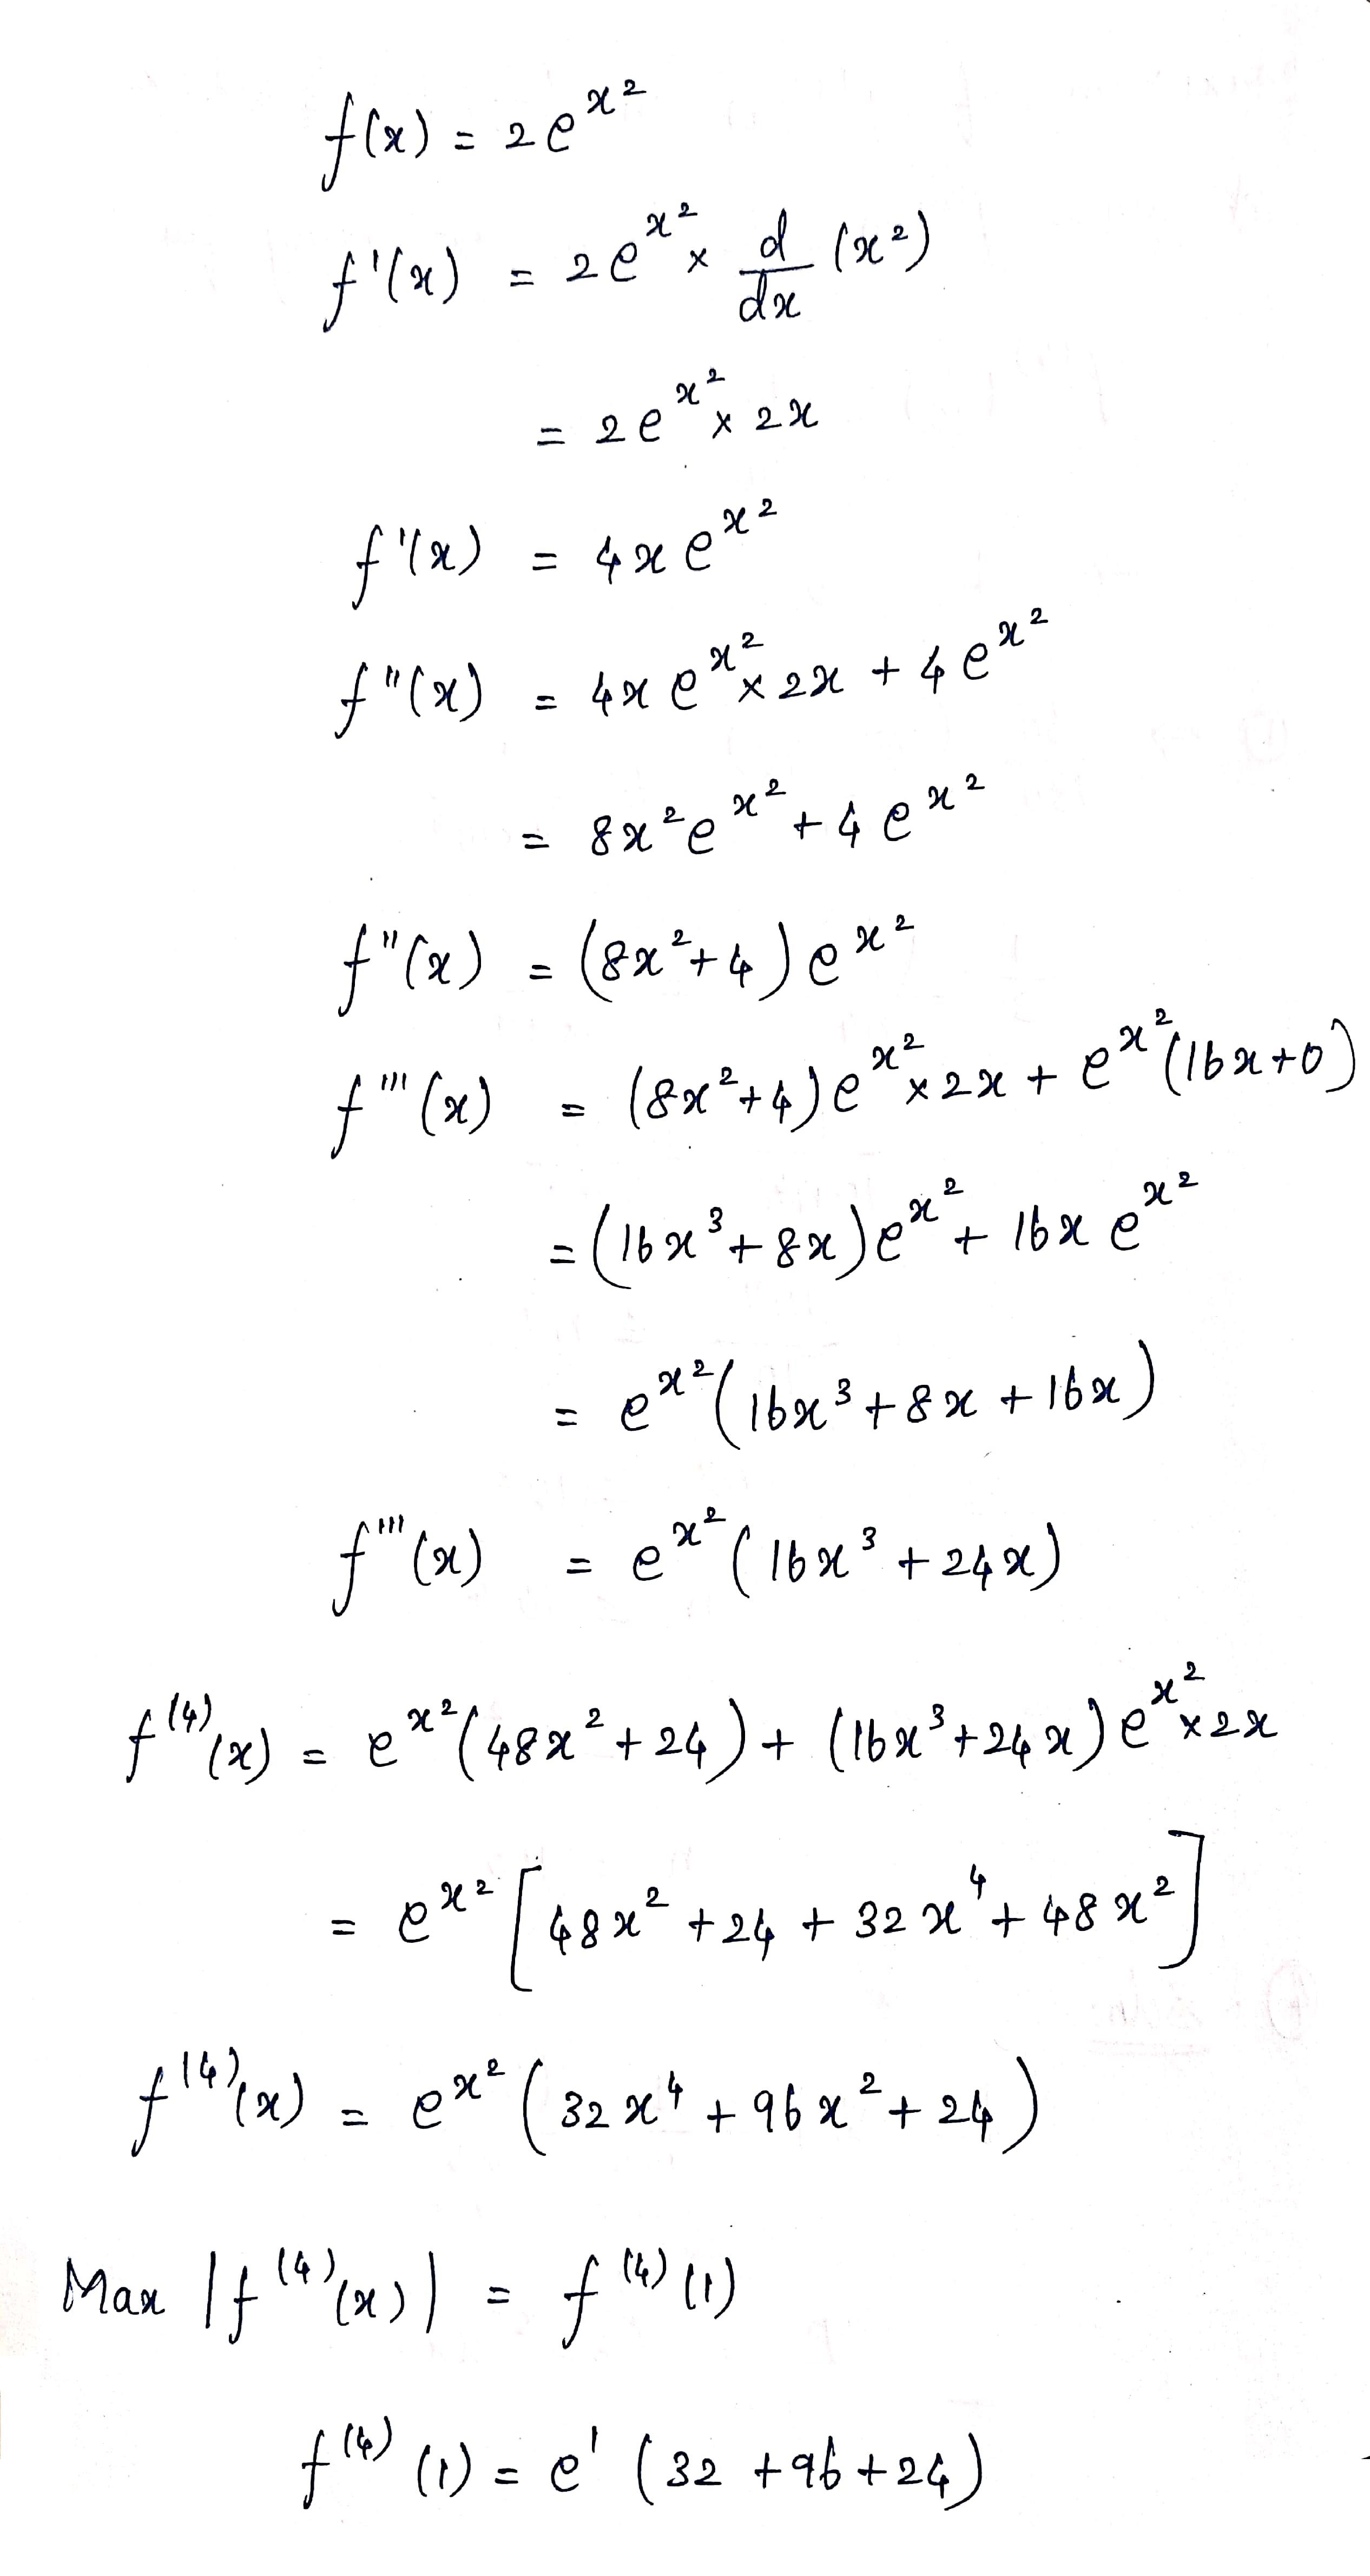 f(x) = 2e^{x^2}
f'(x) = 2e^{x^2} × d/dx (x^2)
= 2e^{x^2} × 2x
f'(x) = 4x e^{x^2}
f''(x) = 4x e^{x^2} × 2x + 4e^{x^2}
= 8x^2 e^{x^2} + 4e^{x^2}
f''(x) = (8x^2+4) e^{x^2}
f'''(x) = (8x^2+4) e^{x^2} × 2x + e^{x^2}(16x+0)
= (16x^3+8x) e^{x^2} + 16x e^{x^2}
= e^{x^2}(16x^3+8x+16x)
f'''(x) = e^{x^2}(16x^3+24x)
f^{(4)}(x) = e^{x^2}(48x^2+24) + (16x^3+24x) e^{x^2} × 2x
= e^{x^2}[48x^2+24+32x^4+48x^2]
f^{(4)}(x) = e^{x^2}(32x^4+96x^2+24)
Max |f^{(4)}(x)| = f^{(4)}(1)
f^{(4)}(1) = e^1 (32+96+24)